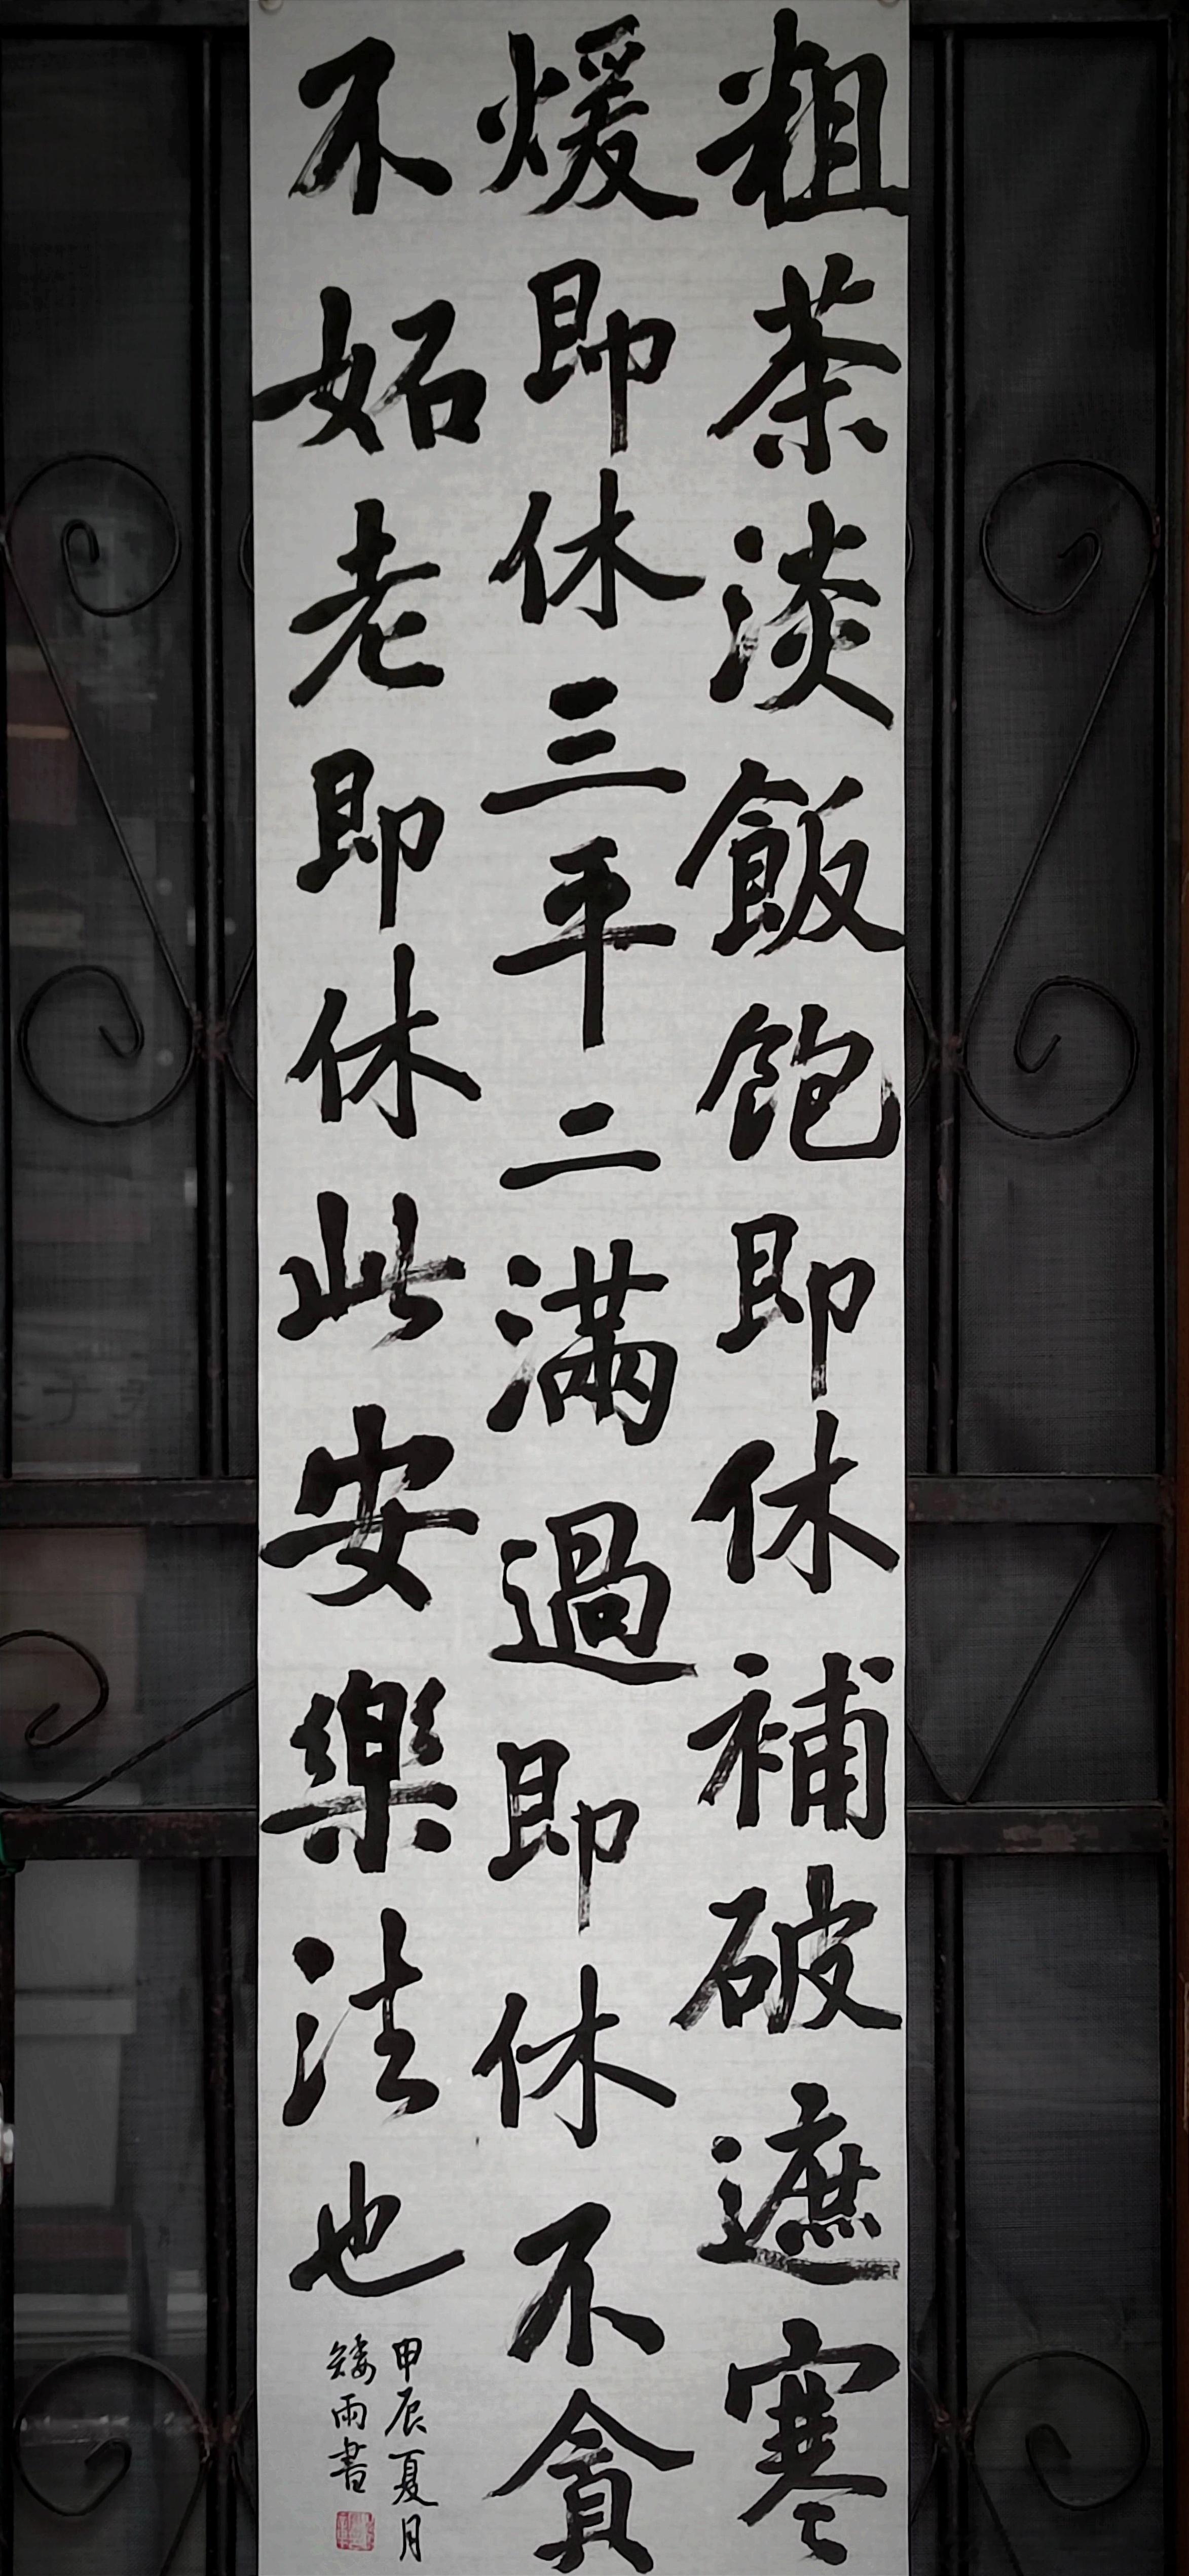 粗茶淡飯飽即休補破遮寒
煖即休三平二滿過即休不貪
不妬老即休此安樂法也
甲辰夏月
矮雨書